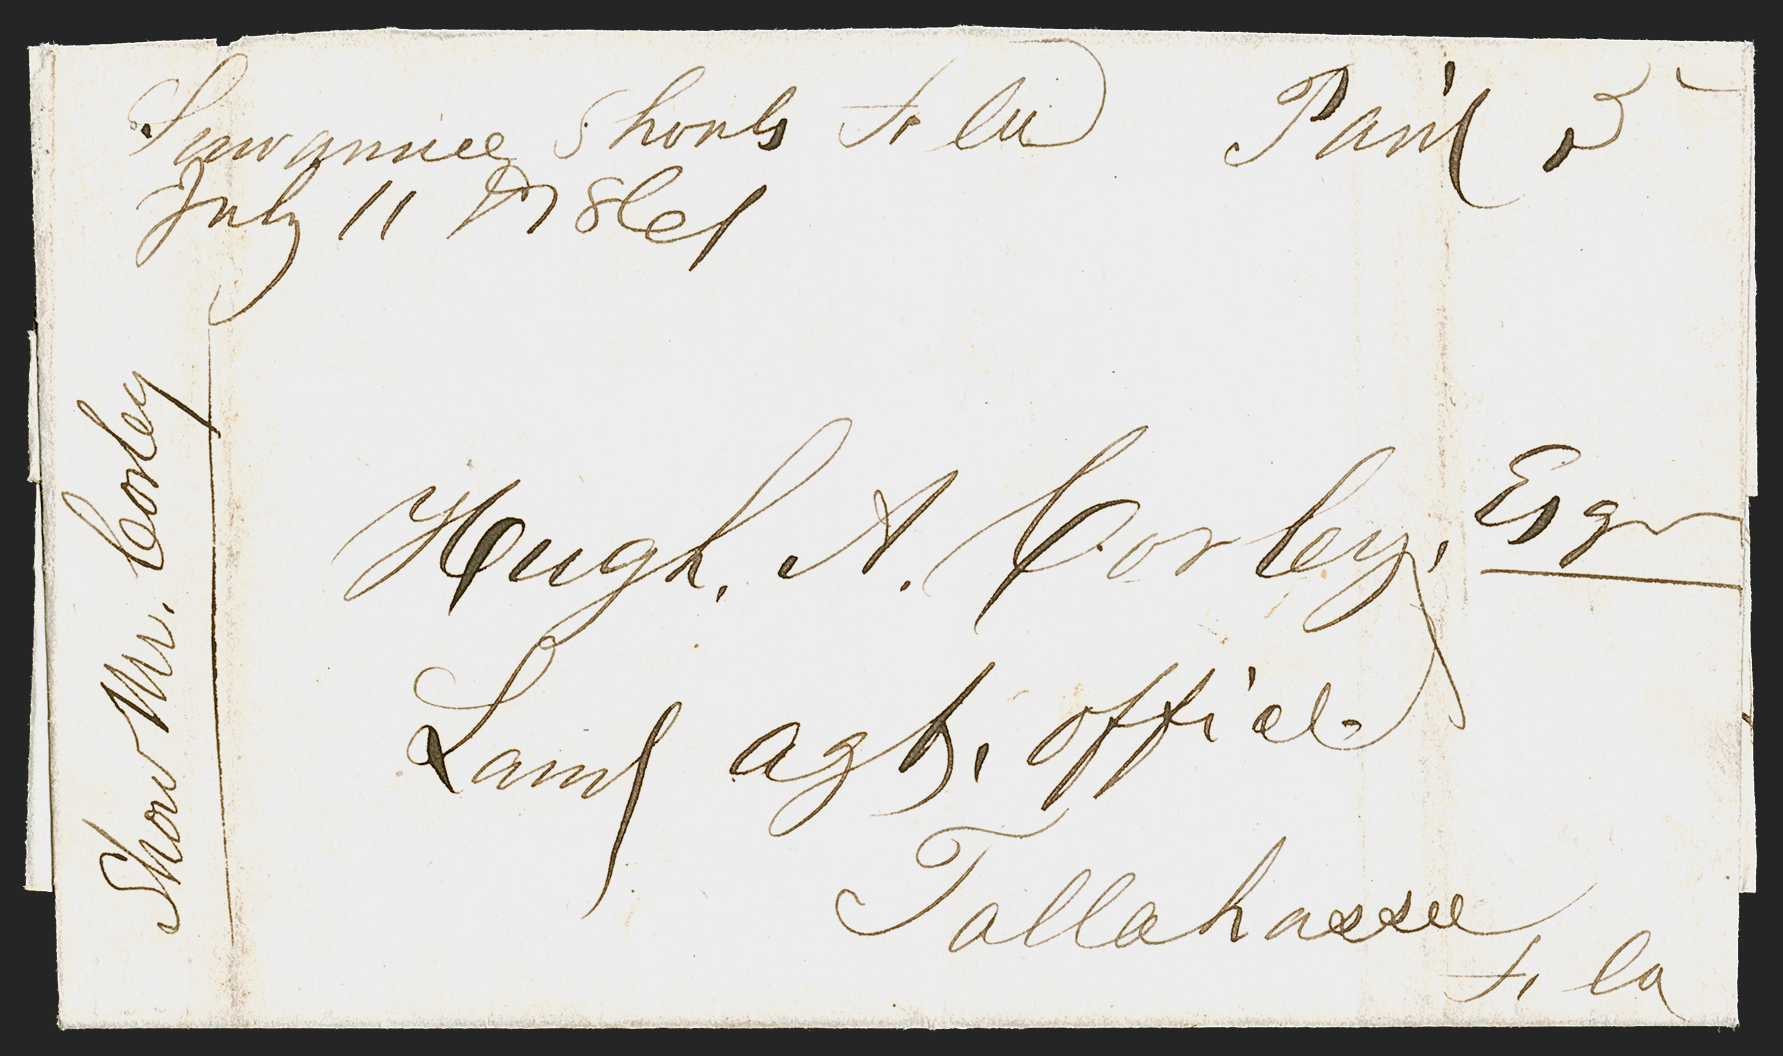 Suwannee Shoals Fla Paid 5
July 11th 1861
Hugh. A. Corley, Esqr
Land agt. office
Tallahassee
Fla
Show Mr. Corley